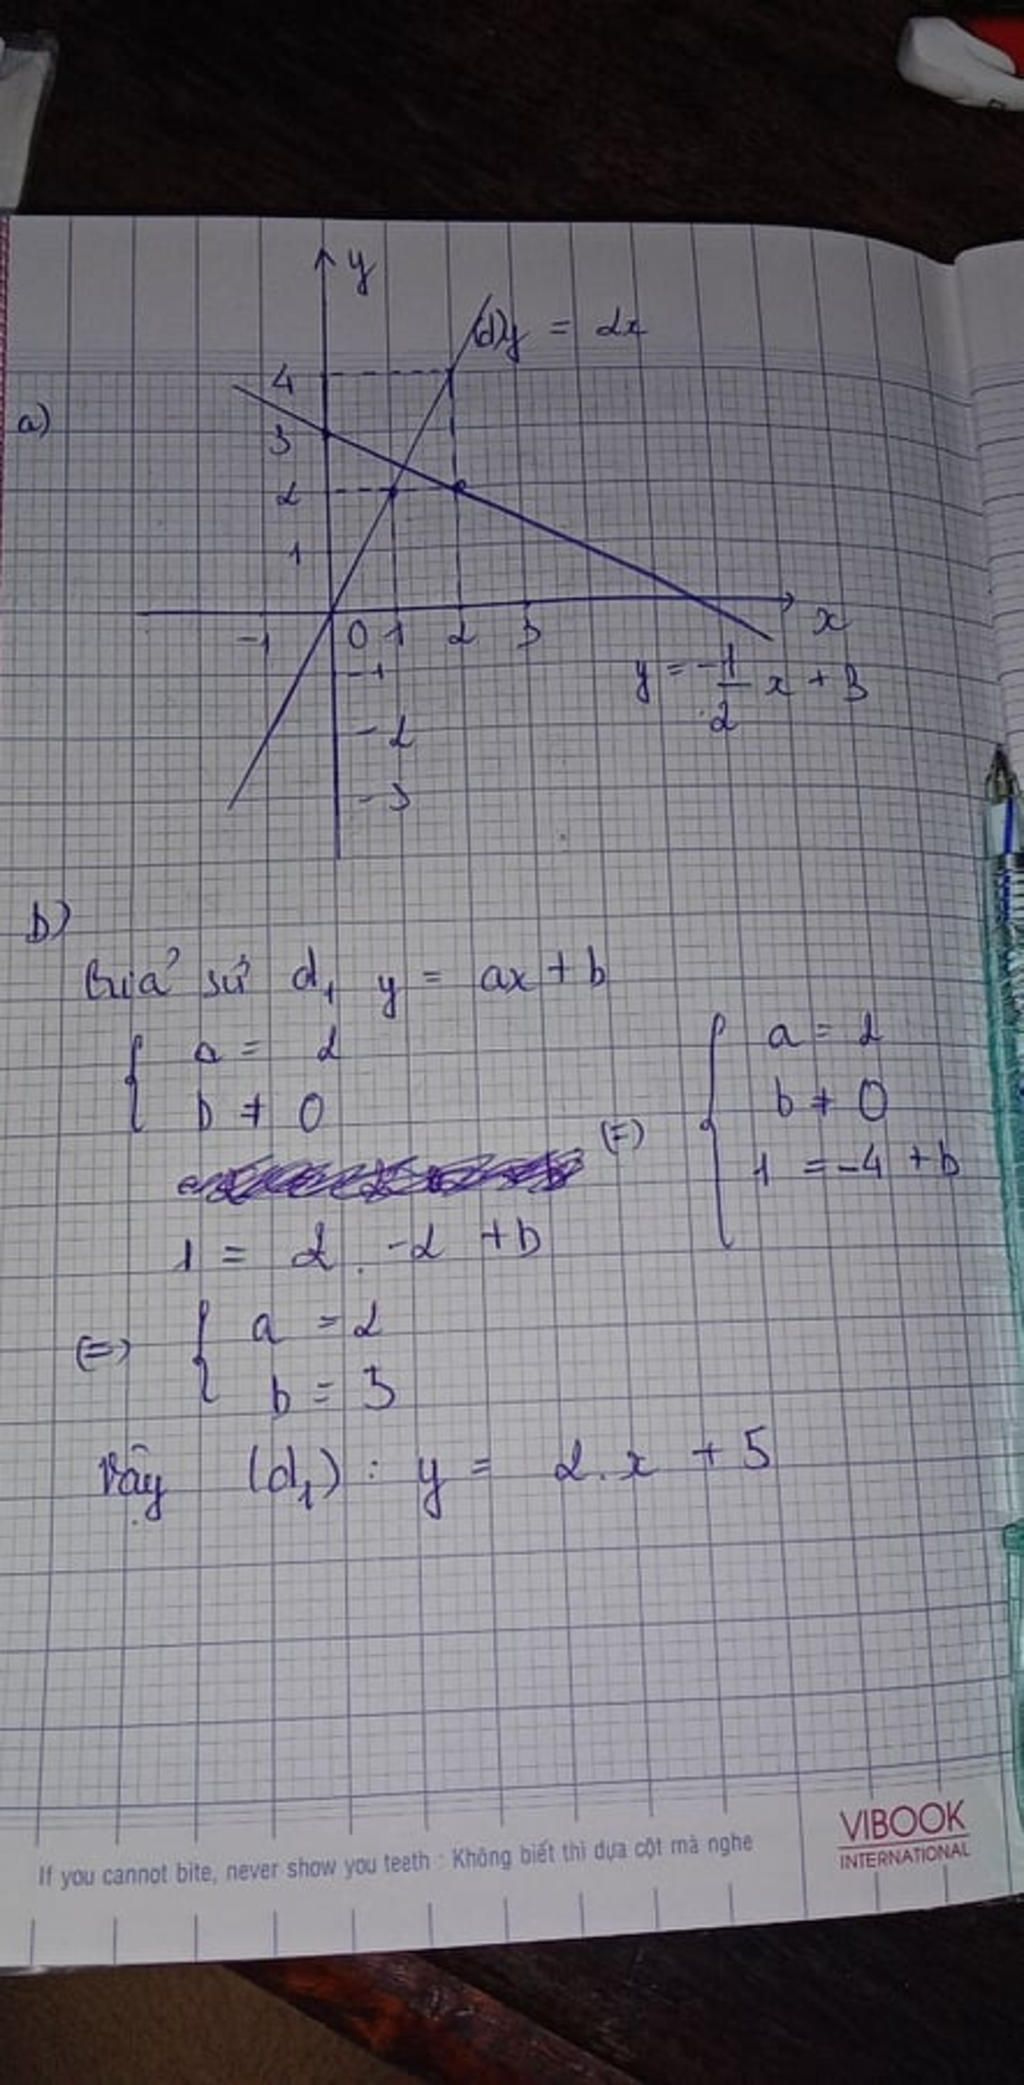 y
(d)y = 2x
4
a)
3
2
1
-1 0 1 2 3 x
-1
y = -1/2 x + 3
-2
-3
b)
Giả sử d1 y = ax + b
{ a = 2
b ≠ 0
1 = 2 . -2 + b
(=) { a = 2
b ≠ 0
1 = -4 + b
(=) { a = 2
b = 5
Vậy (d1) : y = 2.x + 5
If you cannot bite, never show you teeth : Không biết thì dựa cột mà nghe
VIBOOK
INTERNATIONAL